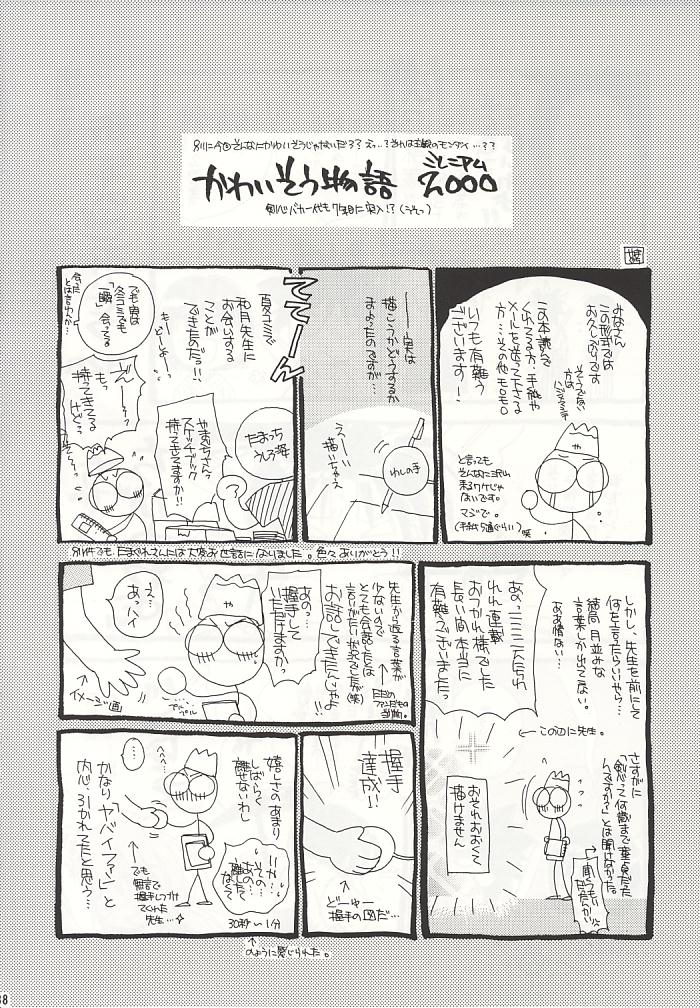 別に今回そんなにかわいそうじゃないだろ?えっ…?それは主観のモンダイ…??
かわいそう物語
ミレニアム
2000
剣心バカ一代も7年目に突入!?(ぞっ)
みなさん
この形式では
お久しぶりです
この本読んで
くれてる方、手紙や
メールを送って下さる
方…その他モロモロ
いつも有難う
ございます!
そうでない
方は
ハジメマシテ
と言っても
そんなに沢山
来るワケじゃ
ないです。
マジで。
(手紙5通ぐらい)
笑
――実は
描こうかどうするか
まよったのですが…
えーい
描いちゃえ
わしの手
ててーん
夏コミで
和月先生に
お会いする
ことが
できたのだっ!!
でも実は
冬コミでも
「一瞬」会ってる
会った
とは言わんか…
やまむちゃんっ
スケッチブック
持ってきてますか!!
たまっち
うしろ姿
えーっ
もっ
持ってきてる
けどっ
別件でも、たまぐれさんには大変お世話になりました。色々ありがとう!!
しかし、先生を前にして
何を言ったらいいやら…
結局 月並みな
言葉しか出てこない。
ああ情ない…
あっ…
れれ連載
おつかれ様でした
長い間 本当に
有難うございましたっ
←この辺に先生。
さすがに
「剣心って何歳まで童貞だった
んですか?」とは聞けなかった
聞くつもり
だったんかい!!
おそれおおくて
描けません
先生から返る言葉が
少ないので
とても会話したとは
言いがたい状況でしたが(笑)
お話しできたんじゃよ
ただの
ファンだもの
当然。
あの…
握手して
いただけますか?
や
え…
あっハイ
イメージ画
握手
達成!!
どーゆー
握手の図だ…
嬉しさのあまり
しばらく
離せないわし
その…
あの…
離したく
なくて
30秒~1分
のように感じられた。
でも
無言で
握手しつづけ
てくれた
先生…
かなり「ヤバイファン」と
内心、引かれてたと思う…
38